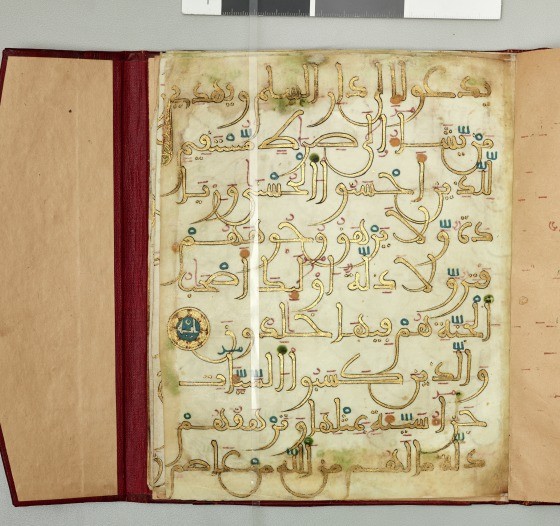 يدعوا إلى دار السلم ويهدي
من يشا إلى صرط مستقيم
للذين أحسنوا الحسنى وزيا
دة ولا يرهق وجوههم
قتر ولا ذلة أولئك أصحب
الجنة هم فيها خلدون
والذين كسبوا السيات
جزاء سيئة بمثلها وترهقهم
ذلة ما لهم من الله من عاصم